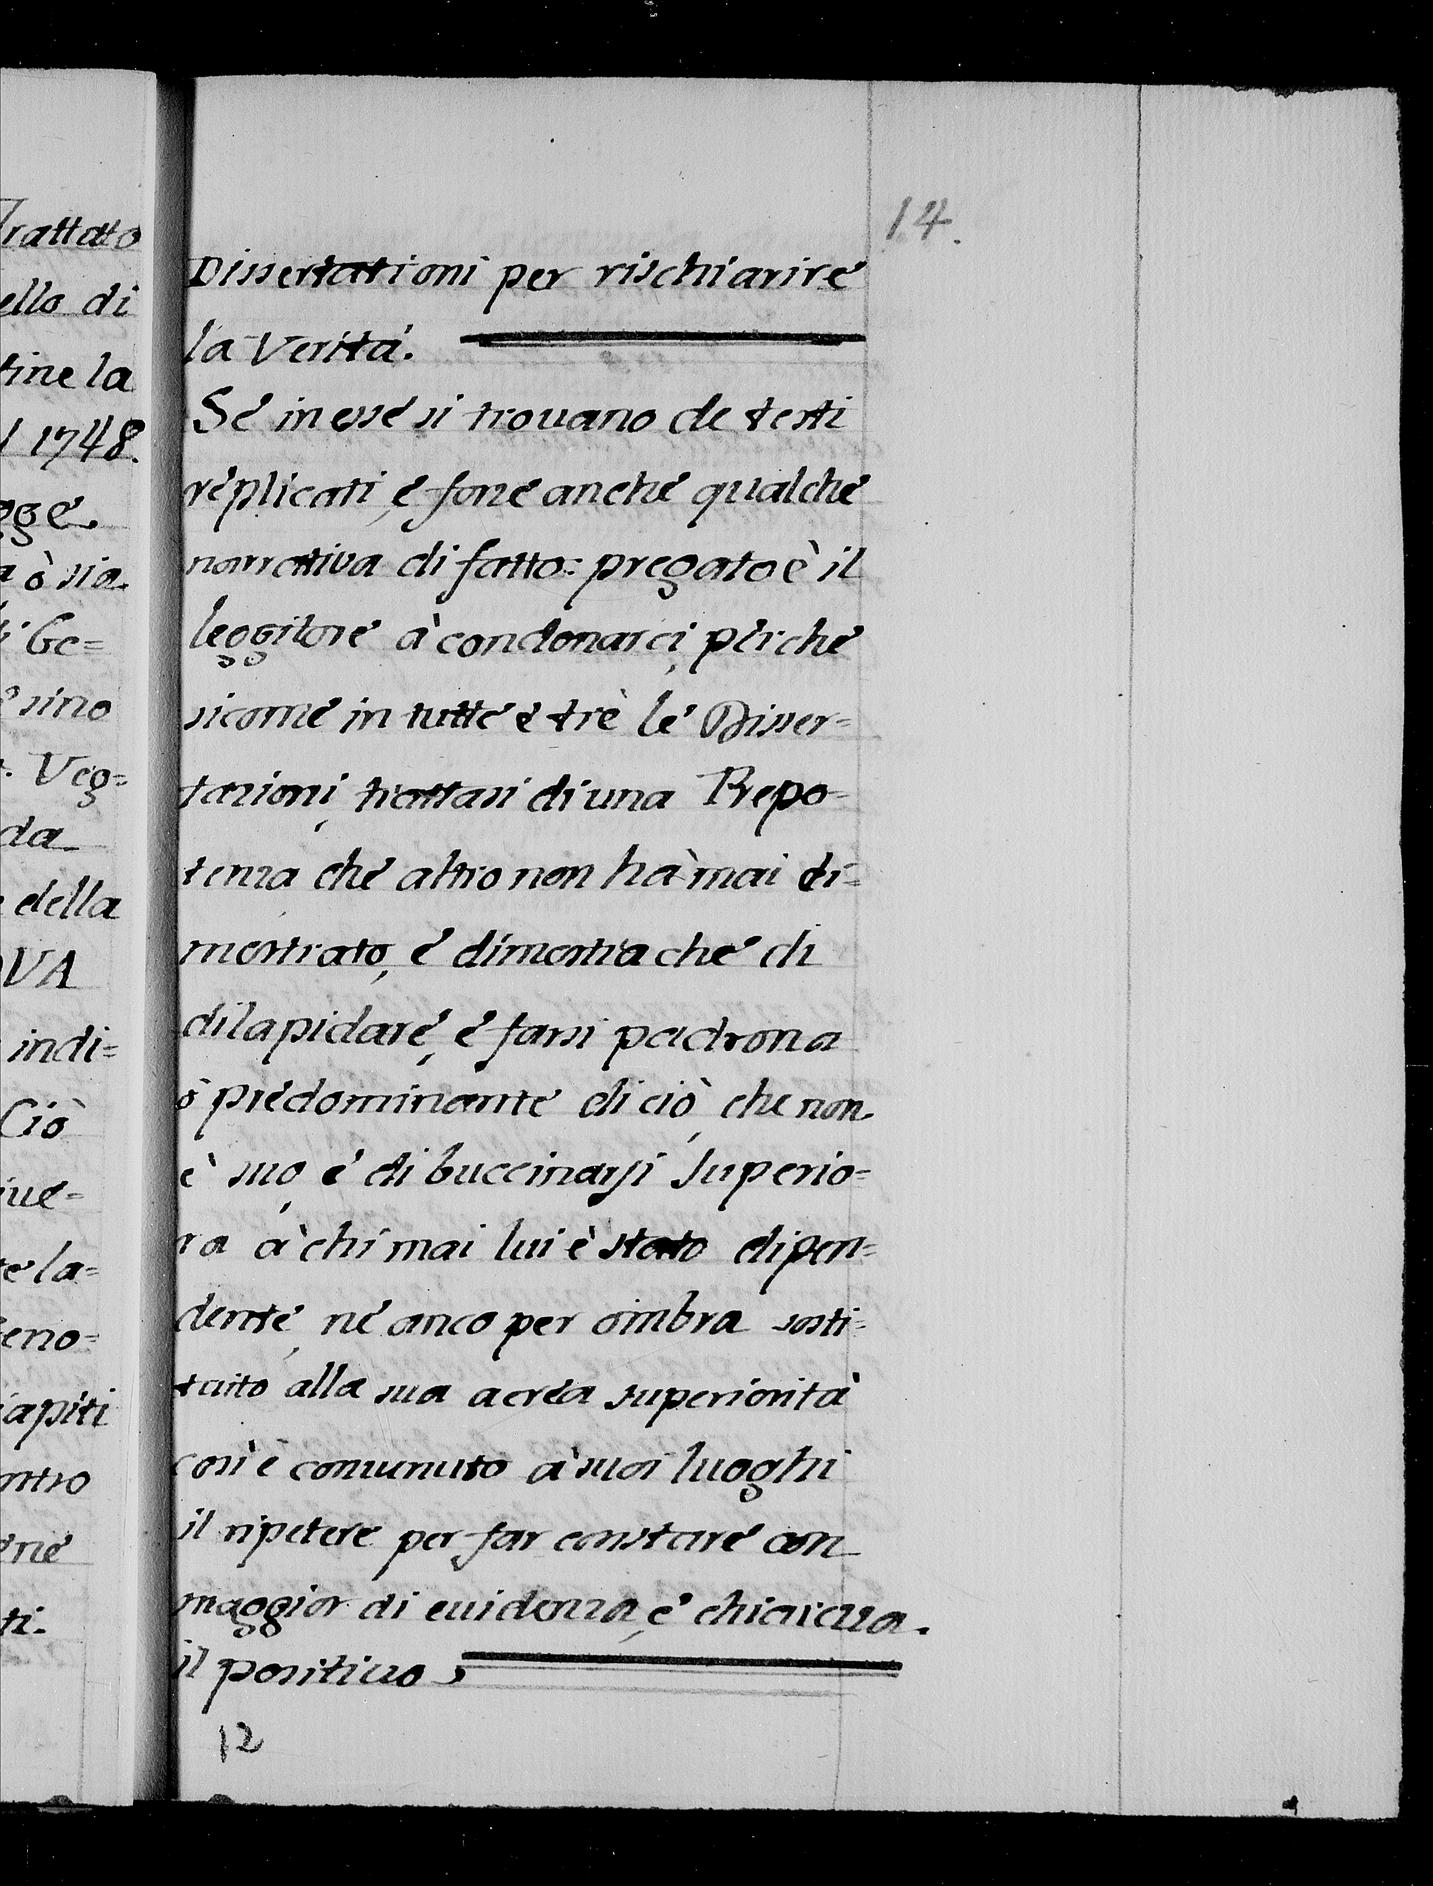 Trattato
ello di
tine la
l 1748.
egge.
a ò sia
di Ge=
è sino
t. Veg=
da
e della
OVA
indi=
Ciò
iue=
te la=
Geno=
capiti
ontro
ene
ti.
14.
Dissertationi per rischiarire
la Verità.
Se in esse si trouano de testi
replicati, e forse anche qualche
narratiua di fatto: pregato è il
leggitore à condonarci, perche
sicome in tutte e trè le Disser=
tazioni, trattasi di una Prepo=
tenza che altro non hà mai di=
mostrato, e dimostra che di
dilapidare, e farsi padrona
ò predominante di ciò, che non
è suo, e di buccinarsi Superio=
ra à chi mai lui è stato dipen=
dente, ne anco per ombra sosti=
tuito alla sua aerea superiorità
così è conuenuto à suoi luoghi
il ripetere per far constare con
maggior di euidenza, e chiarezza
il positiuo.
12